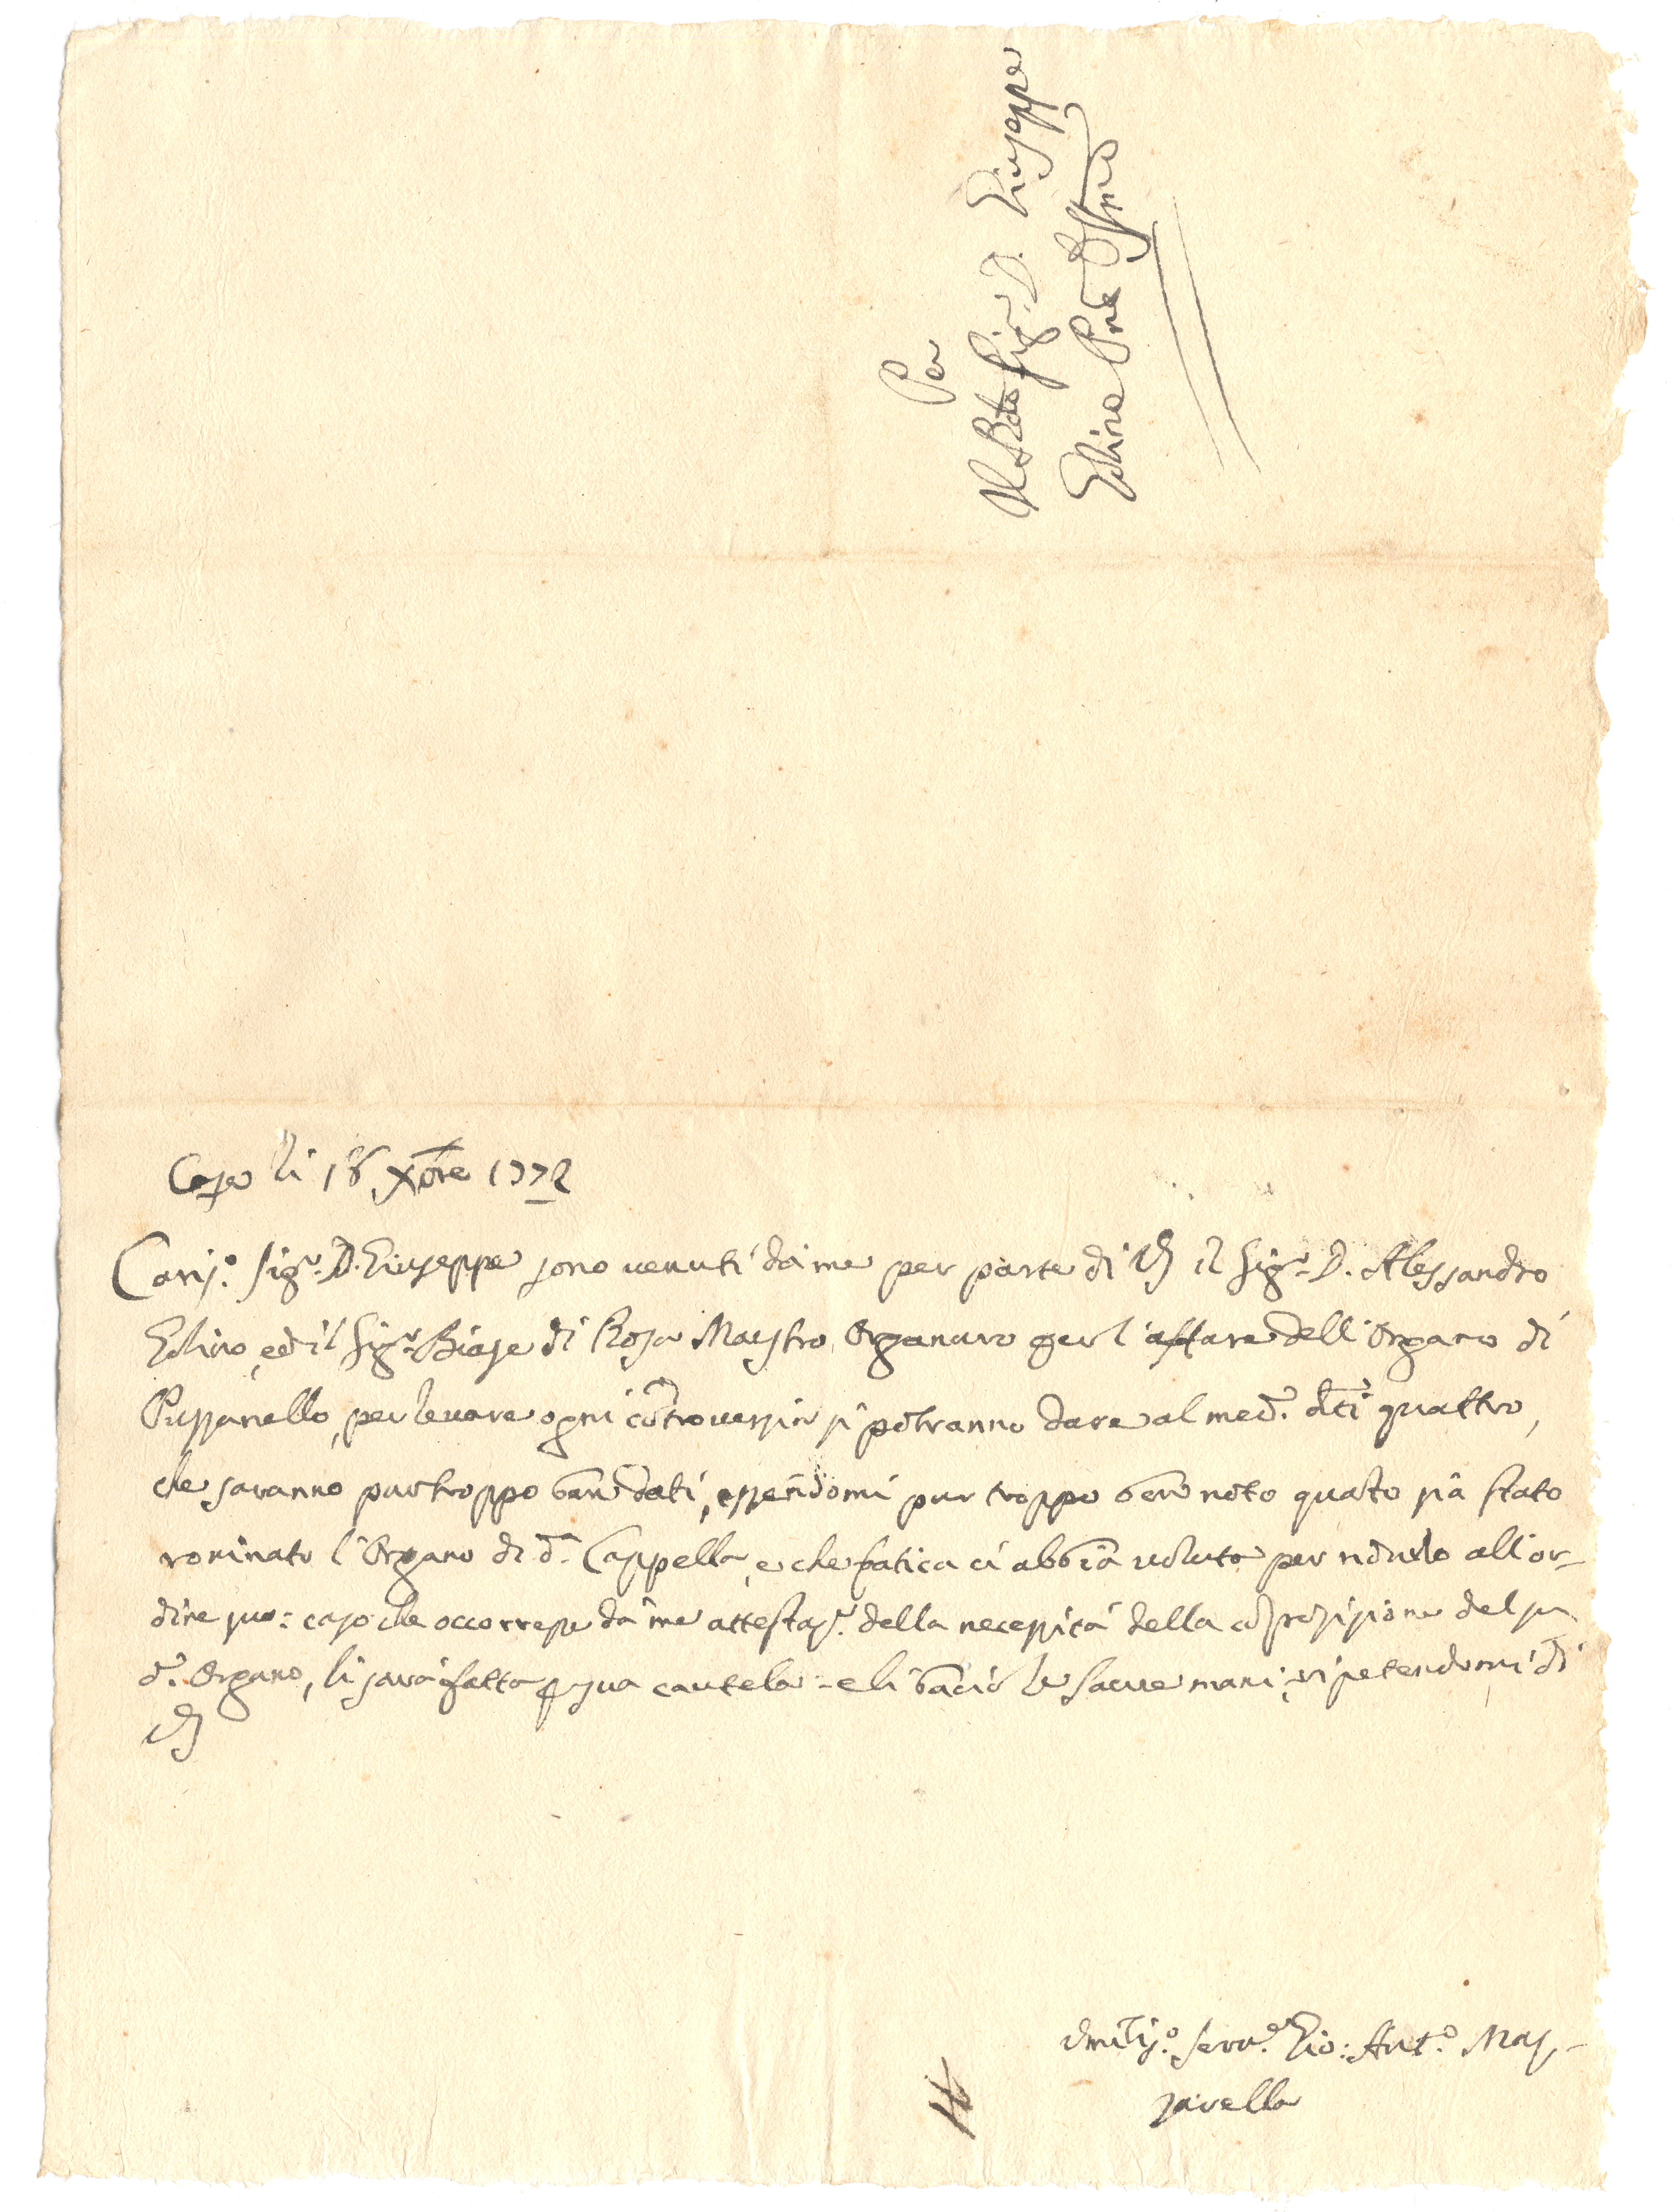 Per
Il Rdo Sigr. D. Giuseppe
Schino Pnte
Casa li 18 Xbre 1772
Cariso. Sigr. D. Giuseppe sono venuti da me per parte di VS il Sigr. D. Alessandro
Schino, ed il Sigr. Biase di Rosa Maestro Organaro per l'affare dell'Organo di
Pussanello, per levare ogni cõtroversia si potranno dare al med.o dti quattro,
che saranno purtroppo ben dati, essendomi pur troppo ben noto quãto sia stato
rovinato l'Organo di d.a Cappella, e che fatica ci abbia voluto per ridurlo all'or-
dine suo: caso che occorresse da me attestaz.e della necessità della
d.o Organo, li sarà fatto p sua cautela = e li bacio le sacre mani, ripetendomi di
VS
Serv.e Gio: Ant.o Maz-
zarella